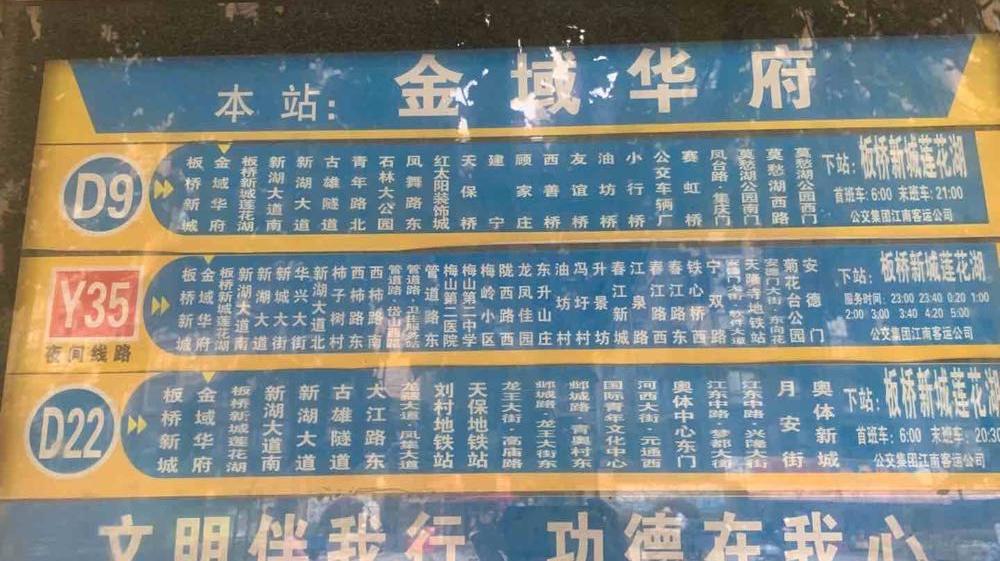 本站：金域华府
D9
板桥新城 金域华府 板桥新城莲花湖 新湖大道南 新湖大道 古雄隧道 青年路北 石林大公园 凤舞路东 红太阳装饰城 天保桥 建宁 顾家庄 西善桥 友谊桥 油坊桥 小行桥 公交车辆厂 赛虹桥 凤台路·集庆门 莫愁湖公园南门 莫愁湖西路 莫愁湖公园西门
下站：板桥新城莲花湖
首班车：6:00 末班车：21:00
公交集团江南客运公司
Y35
夜间线路
板桥新城 金域华府 板桥新城莲花湖 新湖大道南 新湖大道 新城大街 华兴大街 新湖大道北 柿子树村 西柿路东 西柿路南 管道路·岱山路 管道路东 梅山第二医院 梅山第二中学 梅岭小区 陇西路西 龙凤佳园 东升山庄 油坊村 冯圩村 升景坊 春江新城 江泉路 春江路西 春江路东 铁心桥西 宁双路 天隆寺地铁站 安德门大街·东向花园 菊花台公园 安德门
下站：板桥新城莲花湖
服务时间：23:00 23:40 0:20 1:00
2:00 3:00 3:40 4:20 5:00
公交集团江南客运公司
D22
板桥新城 金域华府 板桥新城莲花湖 新湖大道南 新湖大道 古雄隧道 大江路东 龙藏大道·凤集大道 刘村地铁站 天保地铁站 龙王大街·高庙路 邺城路·龙王大街东 邺城路·青奥村东 国际青年文化中心 河西大街·元通西 奥体中心东门 江东中路·梦都大街 江东中路·兴隆大街 月安街 奥体新城
下站：板桥新城莲花湖
首班车：6:00 末班车：20:30
公交集团江南客运公司
文明伴我行 功德在我心